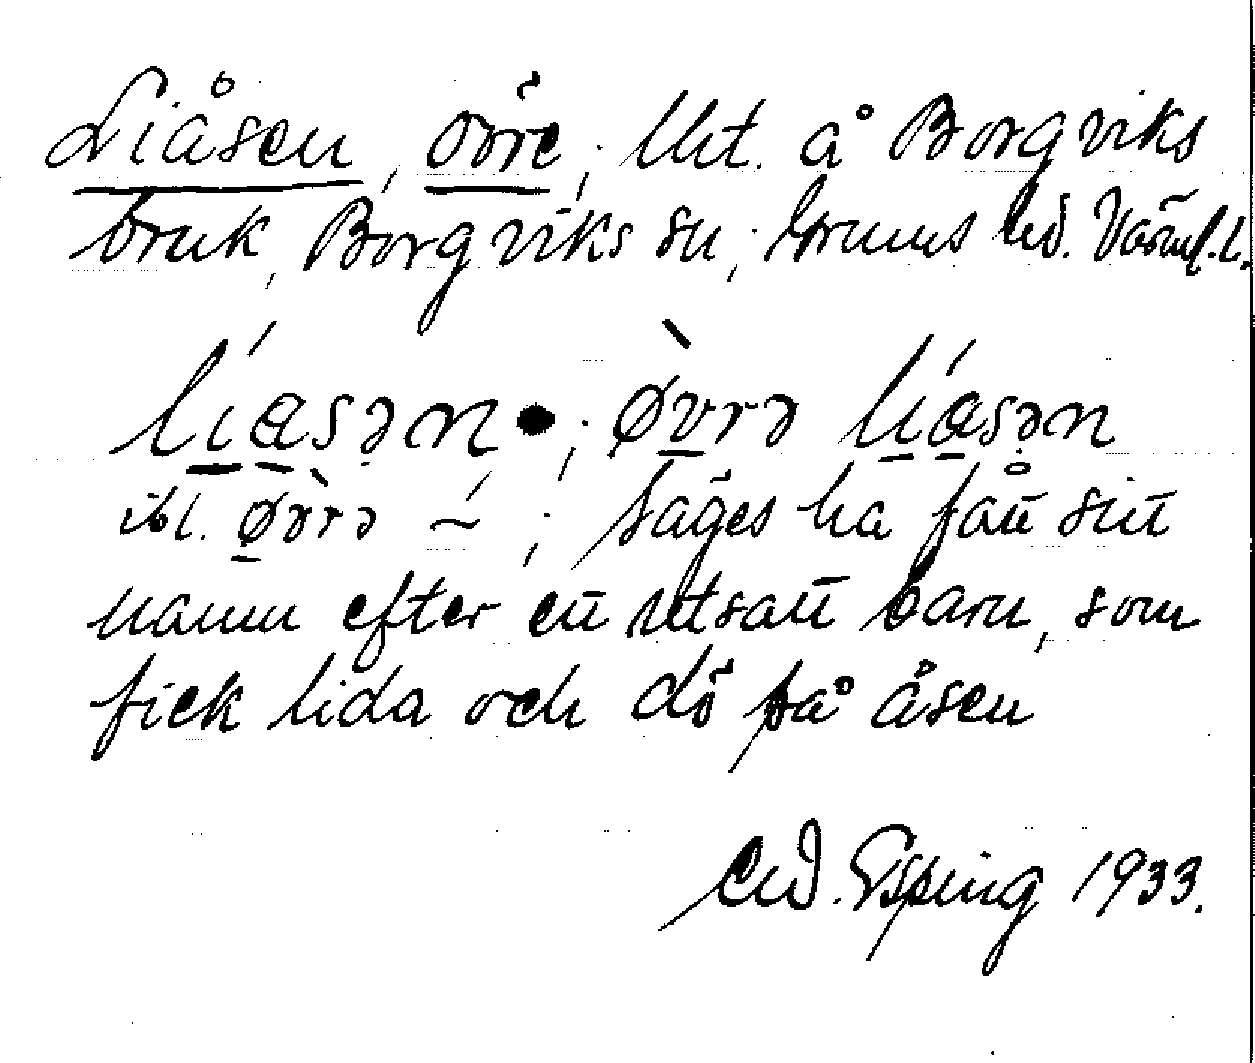 Liåsen, övre; lht. å Borgviks
bruk, Borgviks sn; Grums hd. Värml. l.
líasən ; ø̀vrə líasən
ibl. ø̀vrə –́ ; säges ha fått sitt
namn efter ett utsatt barn, som
fick lida och dö på åsen
Esping 1933.